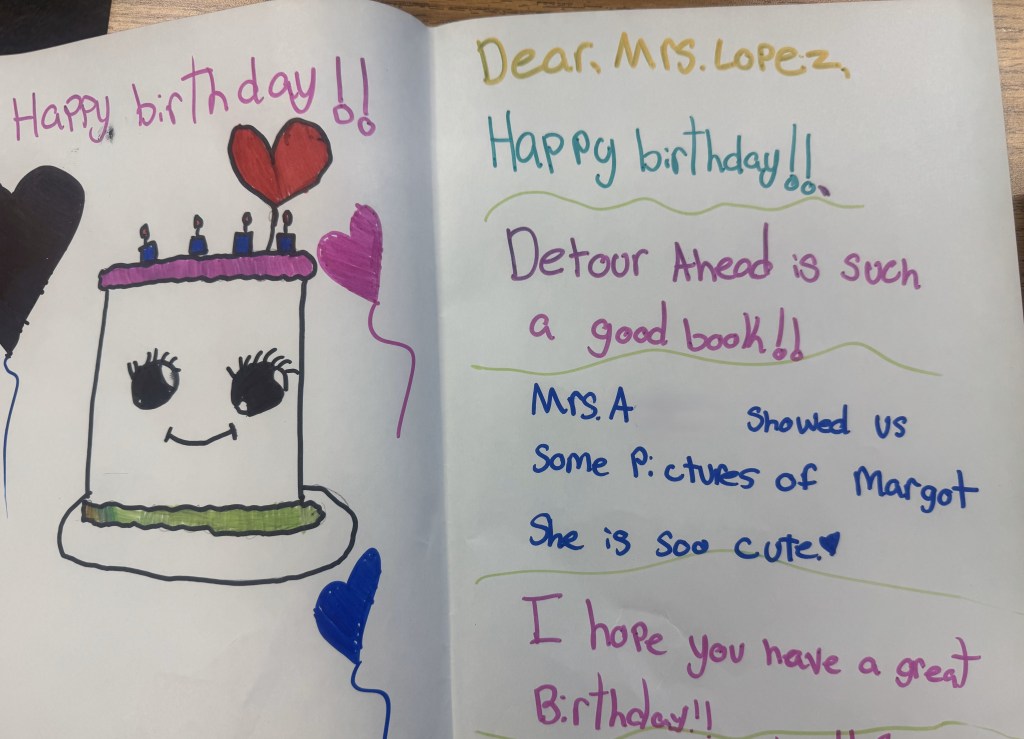 Happy birthday!!
Dear, Mrs. Lopez,
Happy birthday!!
Detour Ahead is such
a good book!!
Mrs. A showed us
Some Pictures of Margot
She is soo cute.
I hope you have a great
Birthday!!